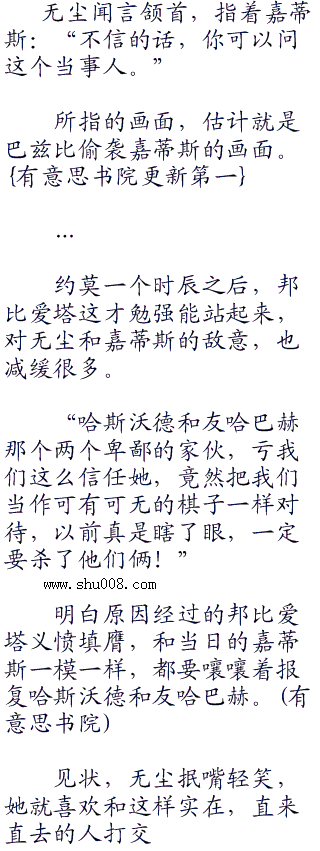 无尘闻言颌首，指着嘉蒂
斯：“不信的话，你可以问
这个当事人。”
所指的画面，估计就是
巴兹比偷袭嘉蒂斯的画面。
{有意思书院更新第一}
...
约莫一个时辰之后，邦
比爱塔这才勉强能站起来，
对无尘和嘉蒂斯的敌意，也
减缓很多。
“哈斯沃德和友哈巴赫
那个两个卑鄙的家伙，亏我
们这么信任她，竟然把我们
当作可有可无的棋子一样对
待，以前真是瞎了眼，一定
要杀了他们俩！”
www.shu008.com
明白原因经过的邦比爱
塔义愤填膺，和当日的嘉蒂
斯一模一样，都要嚷嚷着报
复哈斯沃德和友哈巴赫。(有
意思书院)
见状，无尘抿嘴轻笑，
她就喜欢和这样实在，直来
直去的人打交